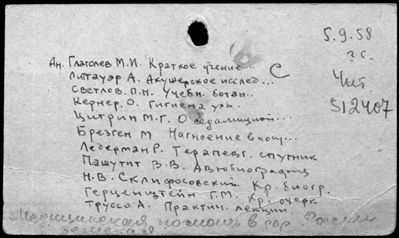 5.9.58
Ан. Глаголев М.И. Краткое учение...
Литауер А. Акушерское исслед...
С
Чит.
Светлов. П.Н. Учебн. ботан..
512407
Кернер. О. Гигиена уха.
Цитрин М.Г. О седалищной...
Брезген М Нагноение в кош...
Ледерман Р. Терапевт. спутник
Пашутит В.В. Автобиография
Н.В. Склифосовский. Кр. биогр.
Герценштейн Г.М. Кр. очерк.
Труссо А. Практич. лекции.
Медицинская помощь в
земская